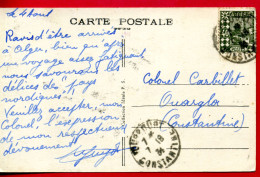 CARTE POSTALE
le 4 Aout
Ravis d'être arrivés
à Alger, bien qu'après
un voyage assez fatigant
nous savourons les
délices des "pays
nordiques"!
Veuillez accepter, mon
Colonel, l'expression
de mon respectueux
dévouement.
Colonel Carbillet
Ouargla
(Constantine)
CONSTANTINE